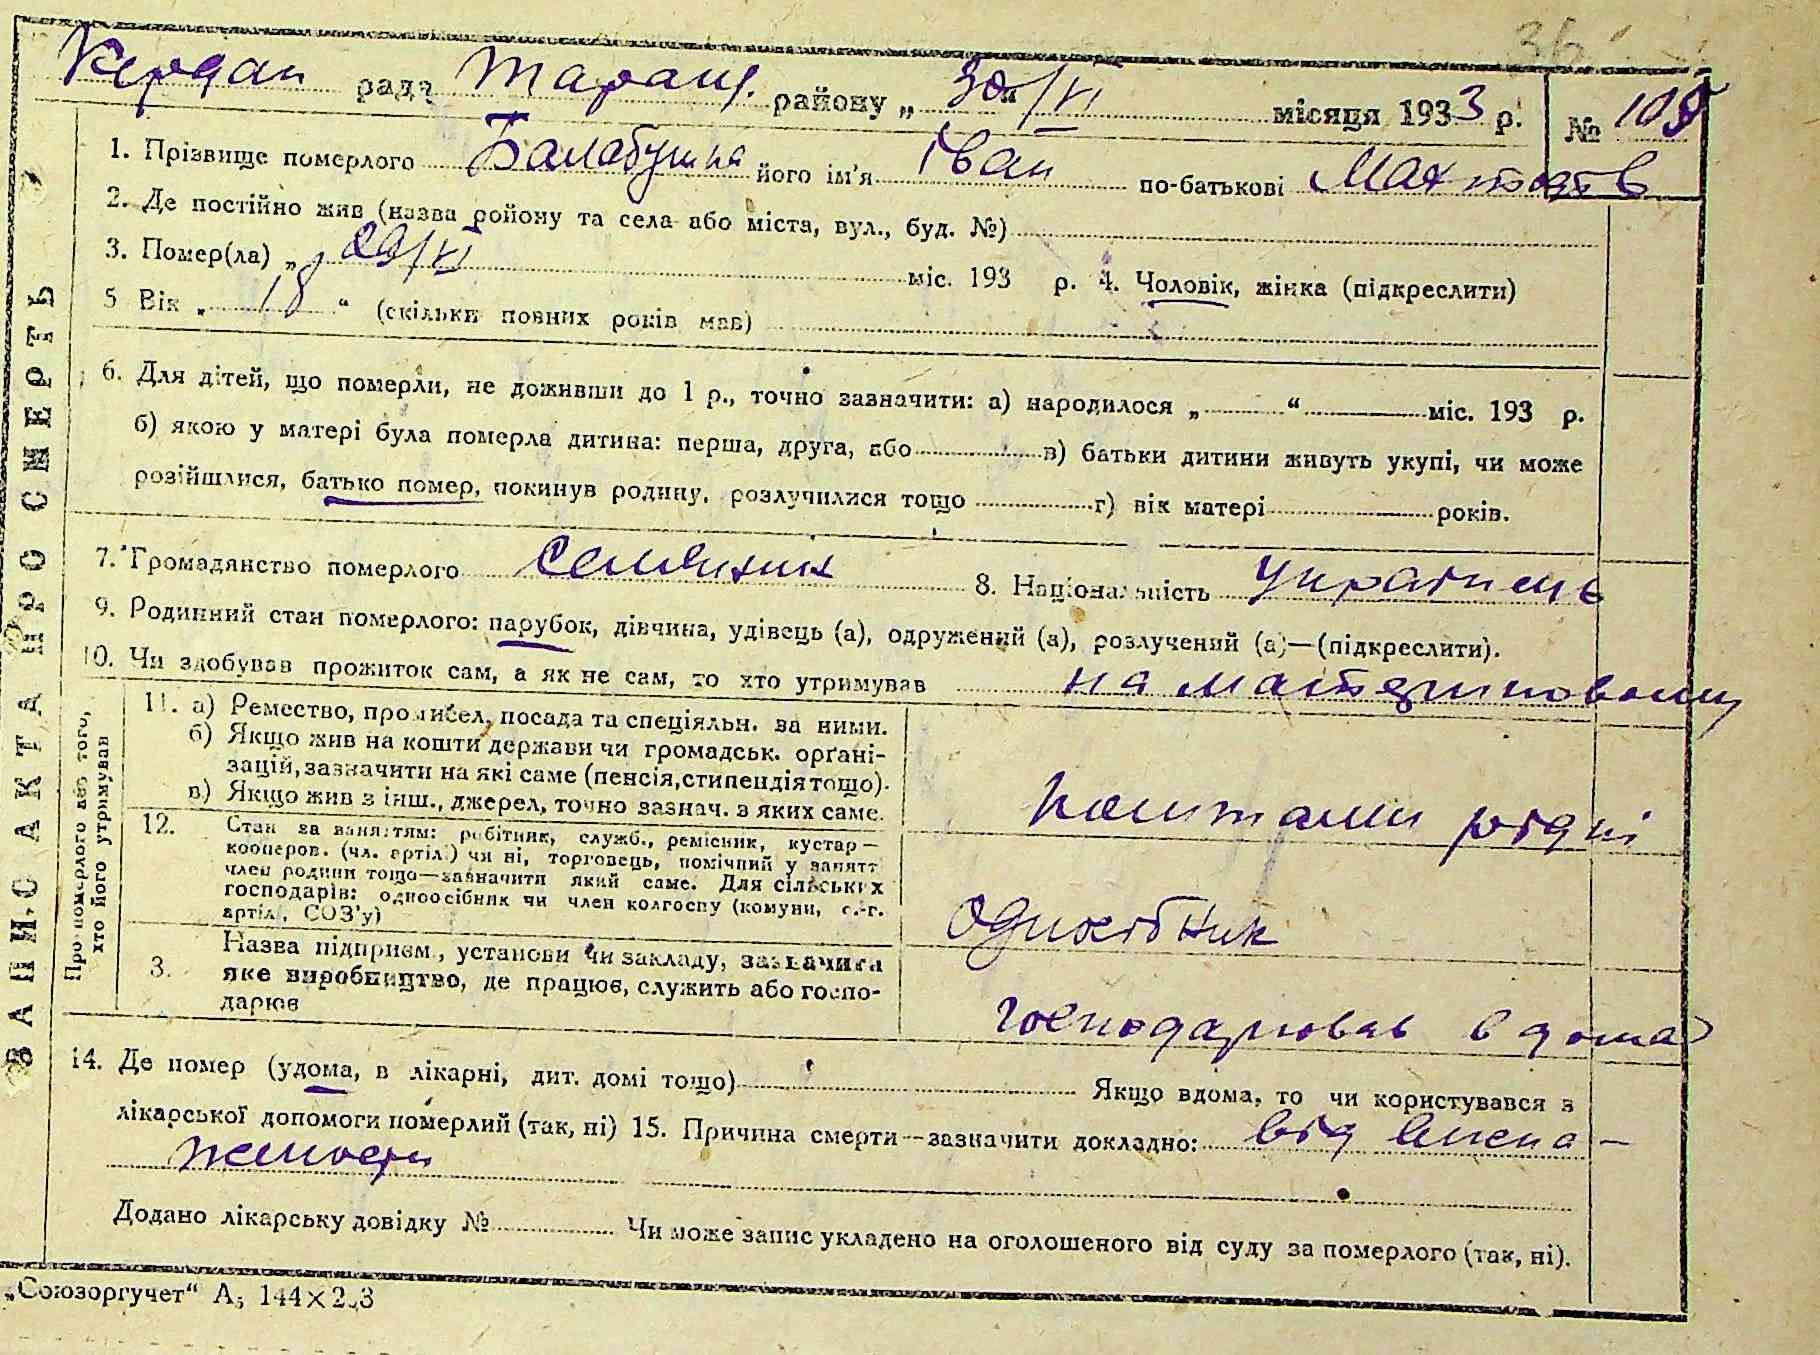 36
Кердан рада Таращ. району „ 30“/VI місяця 1933 р. № 108
1. Прізвище померлого Балабушка його ім'я Іван по-батькові
2. Де постійно жив (назва району та села або міста, вул., буд. №)
3. Помер(ла) „ 29/VI міс. 193 р. 4. Чоловік, жінка (підкреслити)
5 Вік „ 18 “ (скільки повних років мав)
6. Для дітей, що померли, не доживши до 1 р., точно зазначити: а) народилося „ “ міс. 193 р.
б) якою у матері була померла дитина: перша, друга, або в) батьки дитини живуть укупі, чи може
розійшлися, батько помер, покинув родину, розлучилися тощо г) вік матері років.
7. Громадянство померлого селянин 8. Національність Українець
9. Родинний стан померлого: парубок, дівчина, удівець (а), одружений (а), розлучений (а)—(підкреслити).
10. Чи здобував прожиток сам, а як не сам, то хто утримував на
ЗАПИС АКТА ПРО СМЕРТЬ
Про померлого або того,
хто його утримував
11. а) Ремество, промисел, посада та спеціяльн. за ними.
б) Якщо жив на кошти держави чи громадськ. орґані-
зацій, зазначити на які саме (пенсія, стипендія тощо).
в) Якщо жив з інш., джерел, точно зазнач. з яких саме.
коштами рідні
12. Стан за заняттям: робітник, служб., ремісник, кустар—
кооперов. (чл. артіл.) чи ні, торговець, помічний у занятт
член родини тощо—зазначити який саме. Для сільських
господарів: одноосібник чи член колгоспу (комуни, с.-г.
артіл., СОЗ'у)
одноосібник
3. Назва підприєм., установи чи закладу, зазначити
яке виробництво, де працює, служить або госпо-
дарює
господарював вдома
14. Де помер (удома, в лікарні, дит. домі тощо) Якщо вдома, то чи користувався з
лікарської допомоги померлий (так, ні) 15. Причина смерти—зазначити докладно: від висна-
жености
Додано лікарську довідку № Чи може запис укладено на оголошеного від суду за померлого (так, ні).
„Союзоргучет“ А₅ 144×203